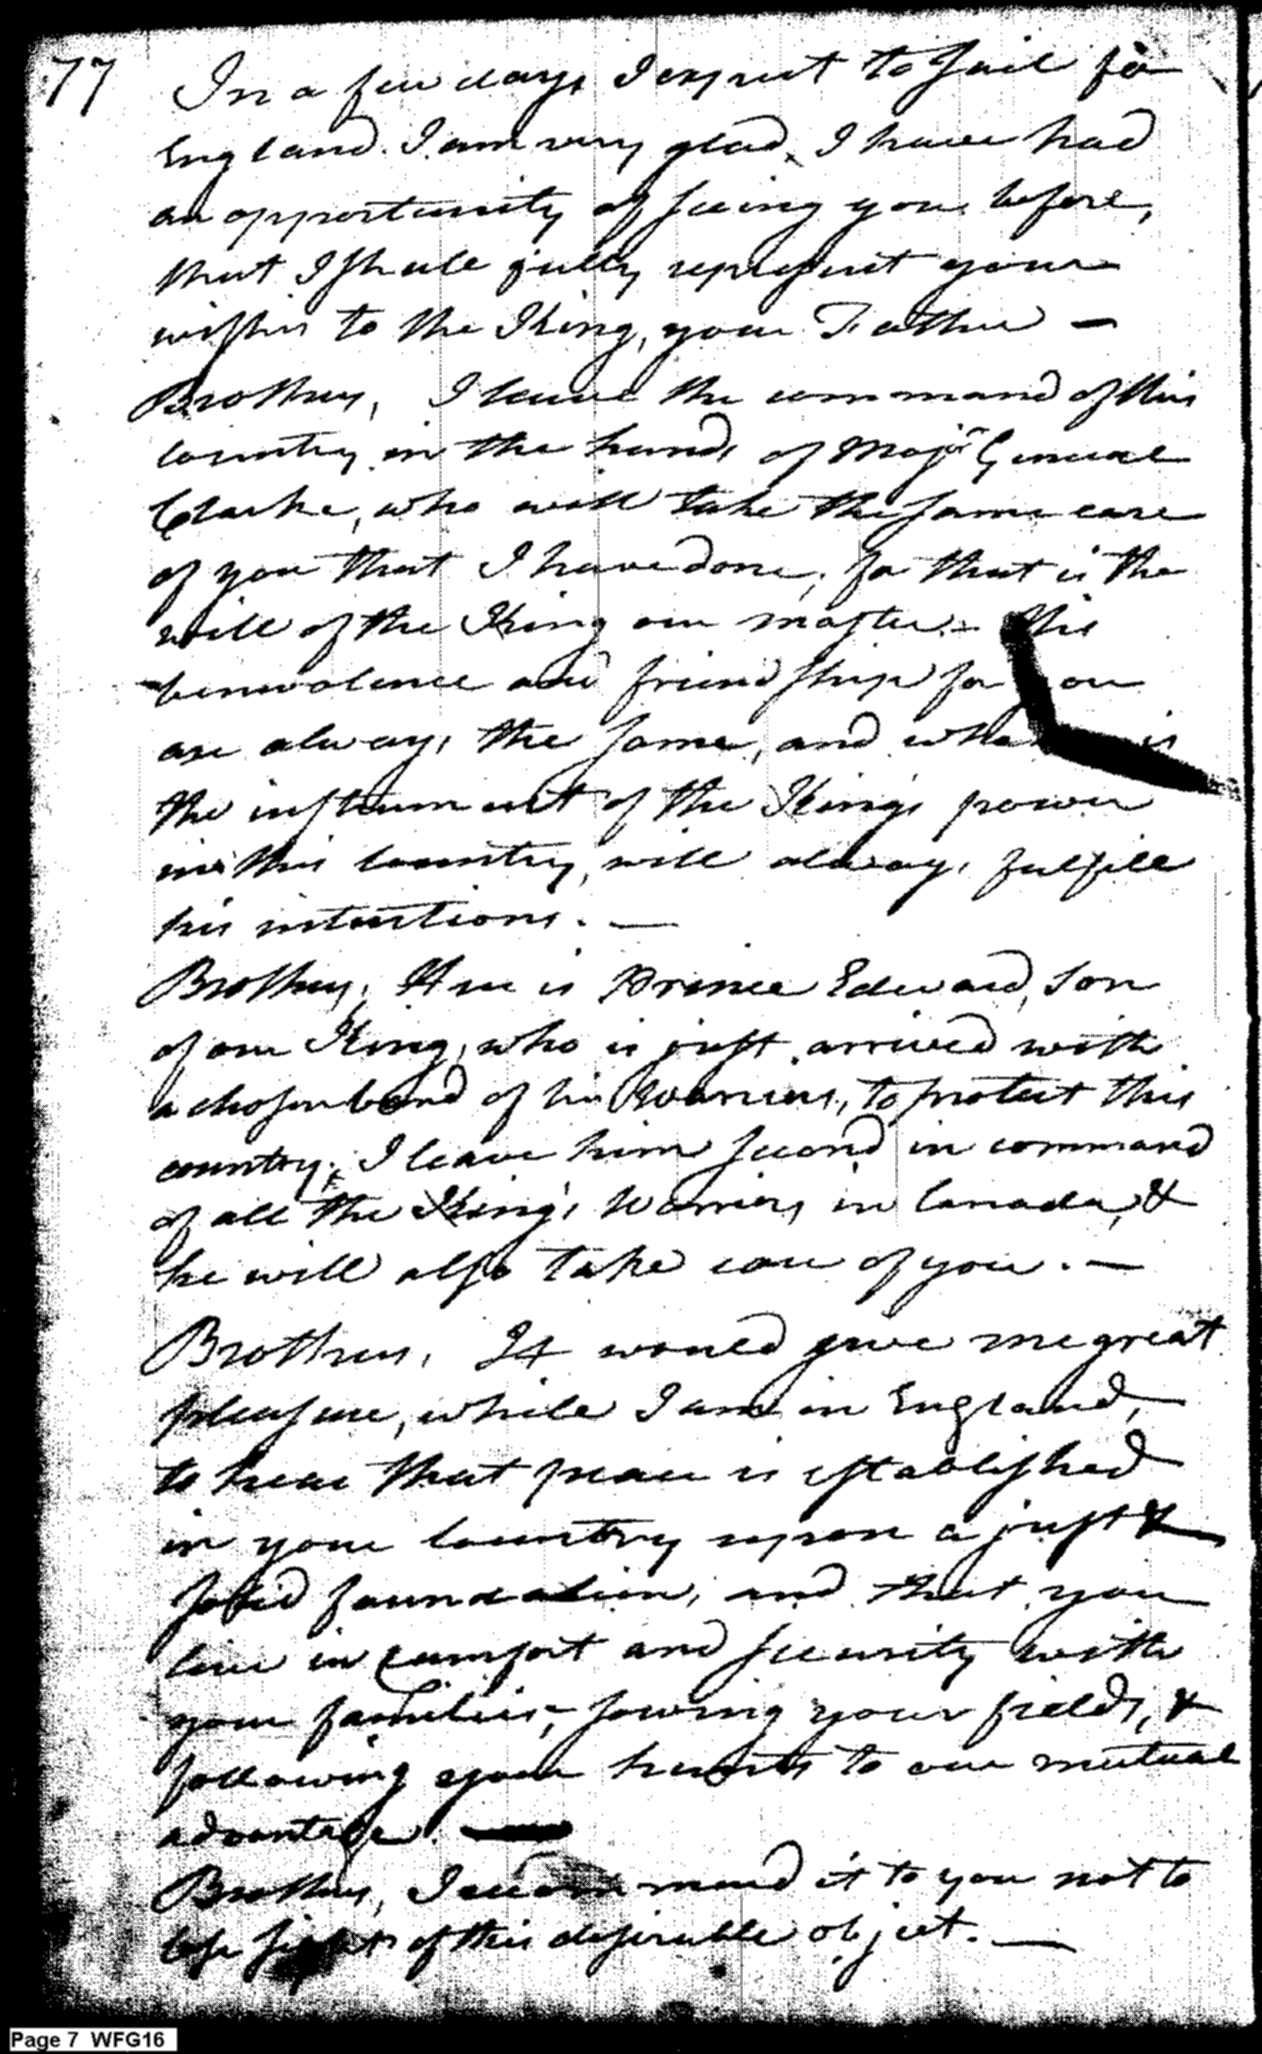 77 In a few days I expect to sail for
England. I am very glad, I have had
an opportunity of seeing you before,
that I shall fully represent your
wishes to the King, your Father —
Brothers, I leave the command of this
Country in the hands of Majr General
Clarke, who will take the same care
of you that I have done, for that is the
will of the King our master. — His
benevolence and friendship for you
are always the same, and is
the instrument of the King's power
in this Country, will always fulfill
his intentions. —
Brothers, Here is Prince Edward, son
of our King, who is just arrived with
a chosen band of his Warriors, to protect this
country; I leave him second in command
of all the King's Warriors in Canada, &
he will also take care of you. —
Brothers, It would give me great
pleasure, while I am in England,
to hear that peace is established
in your Country upon a just &
solid foundation, and that you
live in comfort and security with
your families, sowing your fields, &
following your hunts to our mutual
advantage. —
Brothers, I recommend it to you not to
lose sight of this desirable object. —
Page 7 WFG16